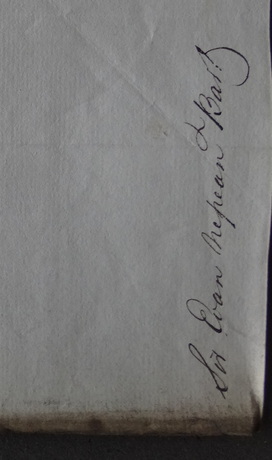 Sir Evan Nepean Bart.